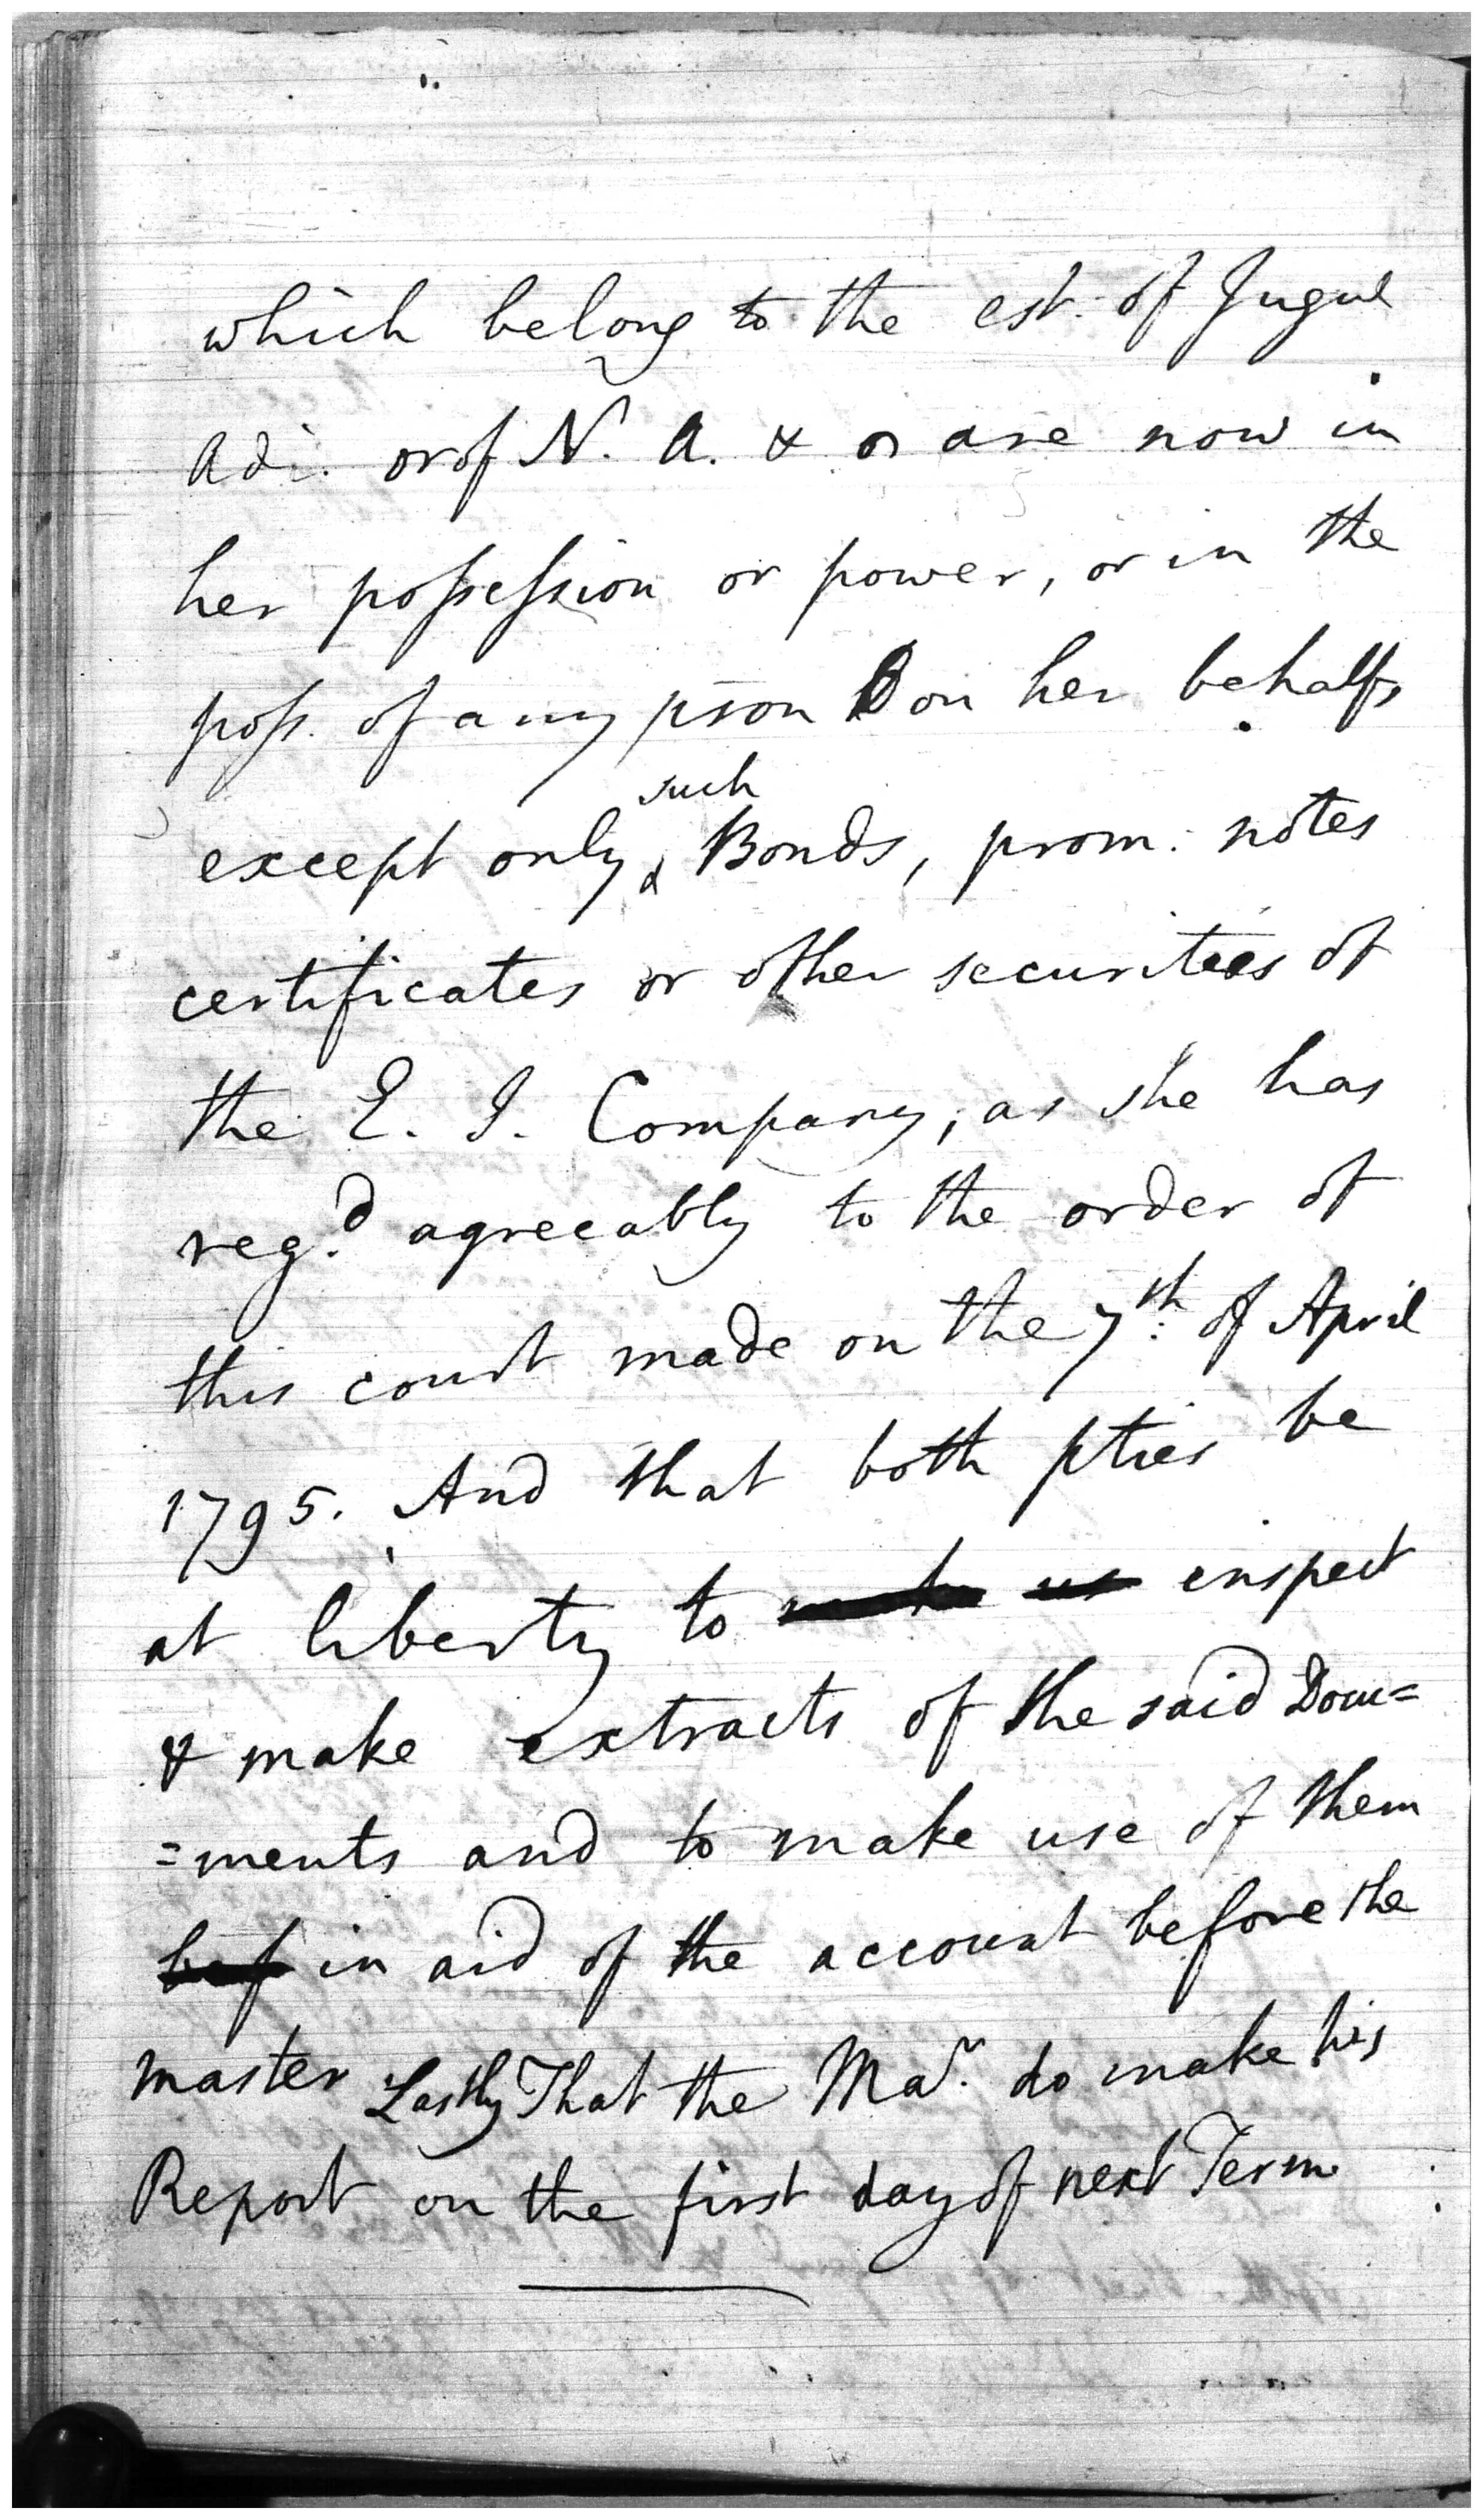 which belong to the est. of Jugul
Adi. or of N. A. & or are now in
her possession or power, or in the
poss. of any pson on her behalf,
such
except only Bonds, prom: notes
certificates or other securities of
the E. I. Company, as she has
reg.d agreeably to the order of
this court made on the 7th: of April
1795. And that both pties be
at liberty to inspect
& make extracts of the said Docu=
=ments and to make use of them
bef in aid of the account before the
master Lastly That the Mar. do make his
Report on the first day of next Term